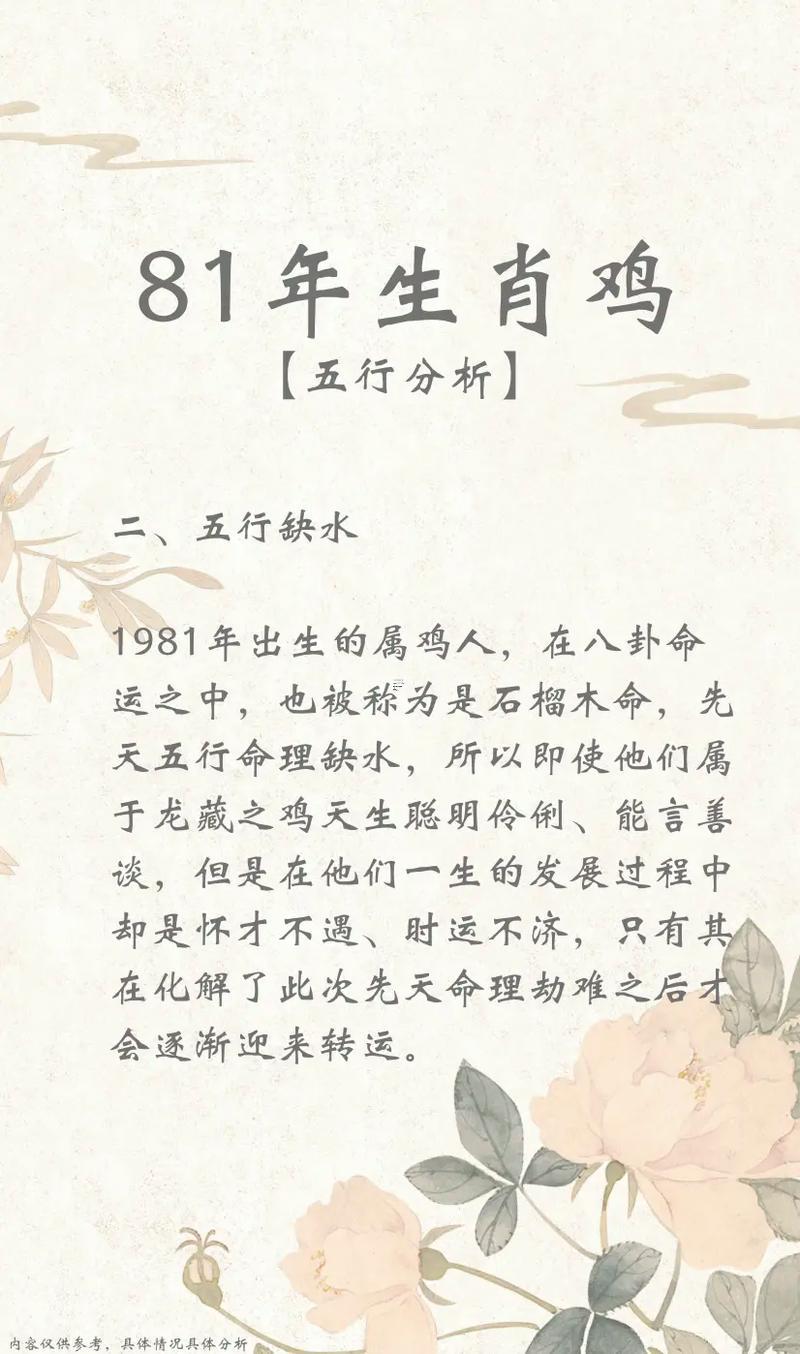 81年生肖鸡
【五行分析】
二、五行缺水
1981年出生的属鸡人，在八卦命
运之中，也被称为是石榴木命，先
天五行命理缺水，所以即使他们属
于龙藏之鸡天生聪明伶俐、能言善
谈，但是在他们一生的发展过程中
却是怀才不遇、时运不济，只有其
在化解了此次先天命理劫难之后才
会逐渐迎来转运。
内容仅供参考，具体情况具体分析